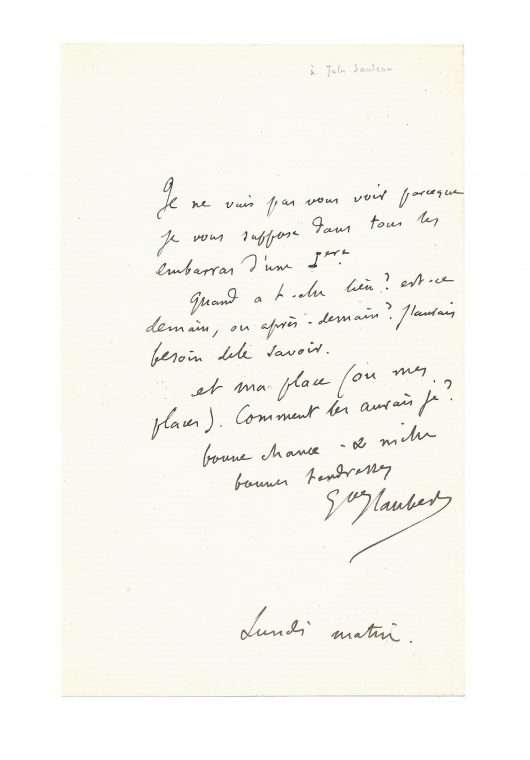 à Jules Sandeau
Je ne vais pas vous voir parceque
je vous suppose dans tous les
embarras d'une 1ere
Quand a t-elle lieu? est-ce
demain, ou après-demain? J'aurais
besoin de le savoir.
et ma place (ou mes
places). Comment les aurais je?
bonne chance - & mille
bonnes tendresses
Gve Flaubert
Lundi matin.